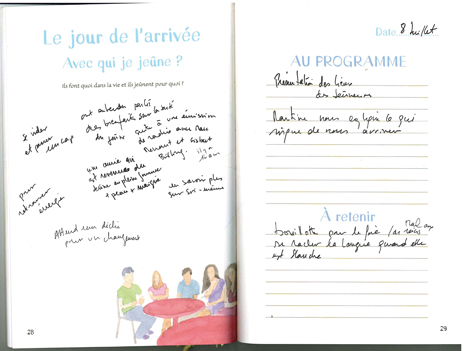 Le jour de l'arrivée
Avec qui je jeûne ?
Ils font quoi dans la vie et ils jeûnent pour quoi ?
s'aider
et passer un cap
ont entendu parlé
des bienfaits sur la santé
du jeûne suite à une émission
de radio avec
et Gisbert
Bölling
une amie qui
est revenue du
jeûne en pleine forme
+ peau + énergie
pour
retrouver
énergie
en savoir plus
sur soi-même
Attend un déclic
pour un changement
28
Date 8 Juillet
AU PROGRAMME
Présentation des lieux
des Jeûneurs
Martine nous explique ce qui
risque de nous arriver
À retenir
bouillotte pour le foie
se racler la langue quand elle
est blanche
29